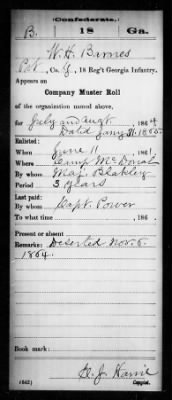 Confederate.
B. 18 Ga.
W. H. Barnes
Pvt, Co. G, 18 Reg't Georgia Infantry.
Appears on
Company Muster Roll
of the organization named above,
for July and Augt, 1864
Dated Jany 31, 1865.
Enlisted:
When June 11, 1861
Where Camp McDonald
By whom Maj. Blakley
Period 3 years
Last paid:
By whom Capt. Power
To what time , 186 .
Present or absent
Remarks: Deserted Nov. 5.
1864.
Book mark:
(642) Copyist.